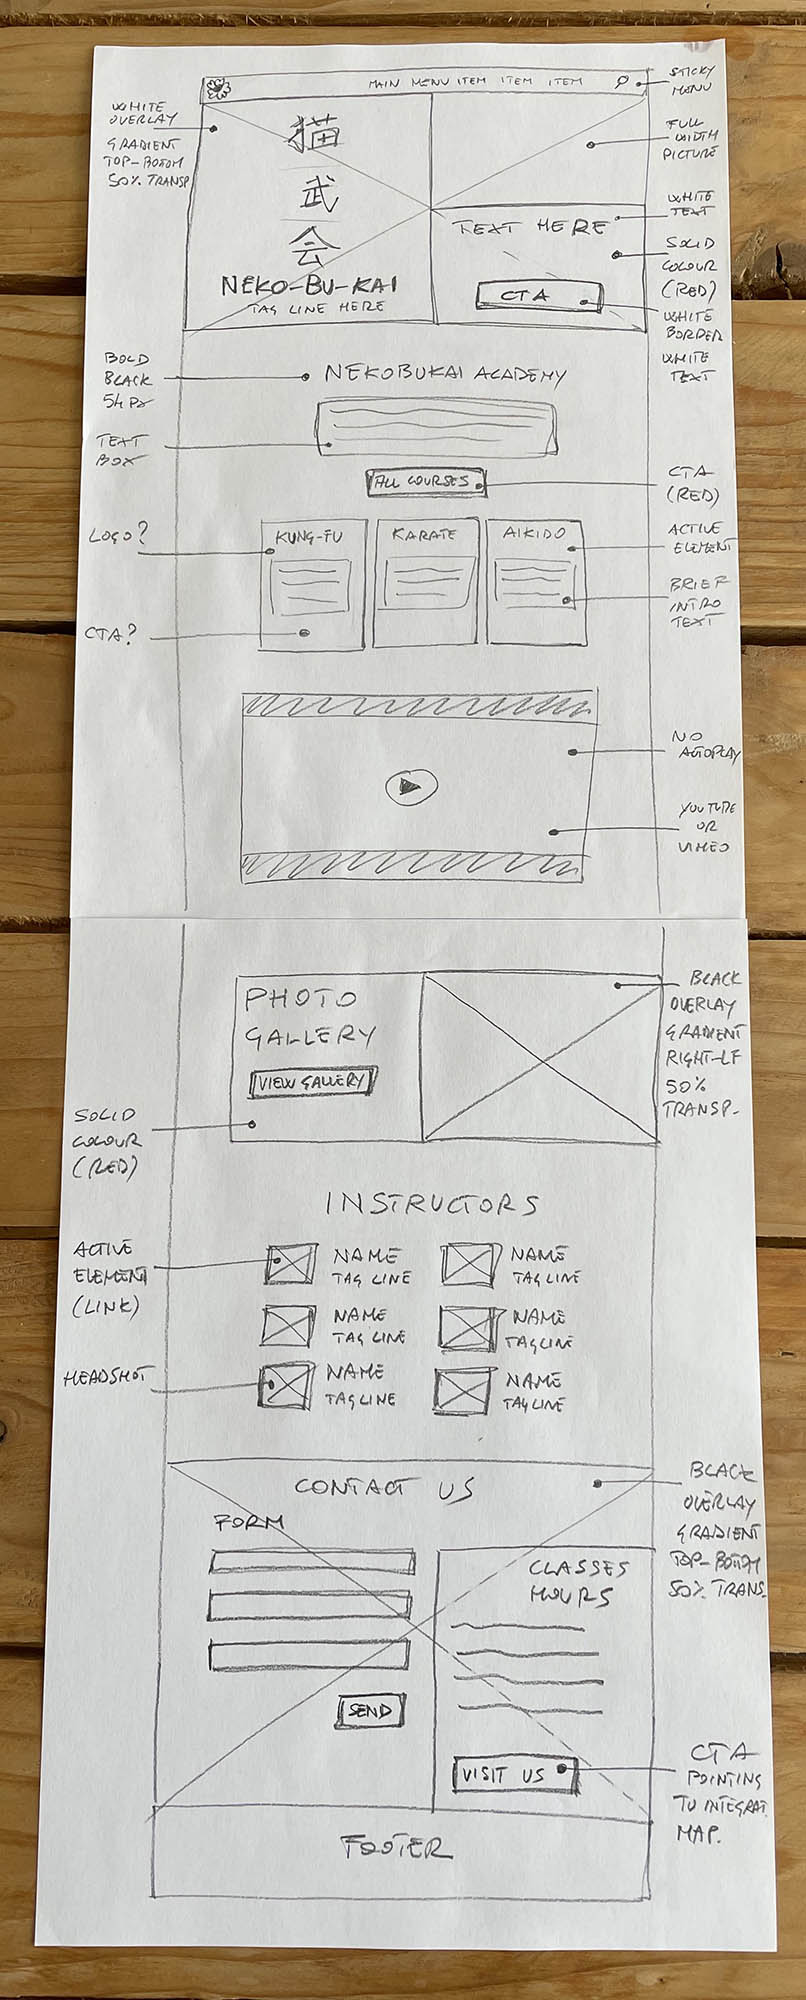 MAIN MENU ITEM ITEM ITEM
STICKY
MENU
WHITE
OVERLAY
GRADIENT
TOP-BOTOM
50% TRANSP
猫
武
会
NEKO-BU-KAI
TAG LINE HERE
FULL
WIDTH
PICTURE
TEXT HERE
WHITE
TEXT
SOLID
COLOUR
(RED)
CTA
WHITE
BORDER
WHITE
TEXT
BOLD
BLACK
54 PX
NEKOBUKAI ACADEMY
TEXT
BOX
ALL COURSES
CTA
(RED)
LOGO?
KUNG-FU
KARATE
AIKIDO
ACTIVE
ELEMENT
BRIEF
INTRO
TEXT
CTA?
NO
AUTOPLAY
YOUTUBE
OR
VIMEO
PHOTO
GALLERY
VIEW GALLERY
BLACK
OVERLAY
GRADIENT
RIGHT-LF
50%
TRANSP.
SOLID
COLOUR
(RED)
INSTRUCTORS
ACTIVE
ELEMENT
(LINK)
NAME
TAG LINE
NAME
TAG LINE
NAME
TAG LINE
NAME
TAGLINE
HEADSHOT
NAME
TAGLINE
NAME
TAGLINE
CONTACT US
BLACK
OVERLAY
GRADIENT
TOP-BOTOM
50% TRANS.
FORM
CLASSES
HOURS
SEND
VISIT US
CTA
POINTING
TO INTEGRAT.
MAP.
FOOTER